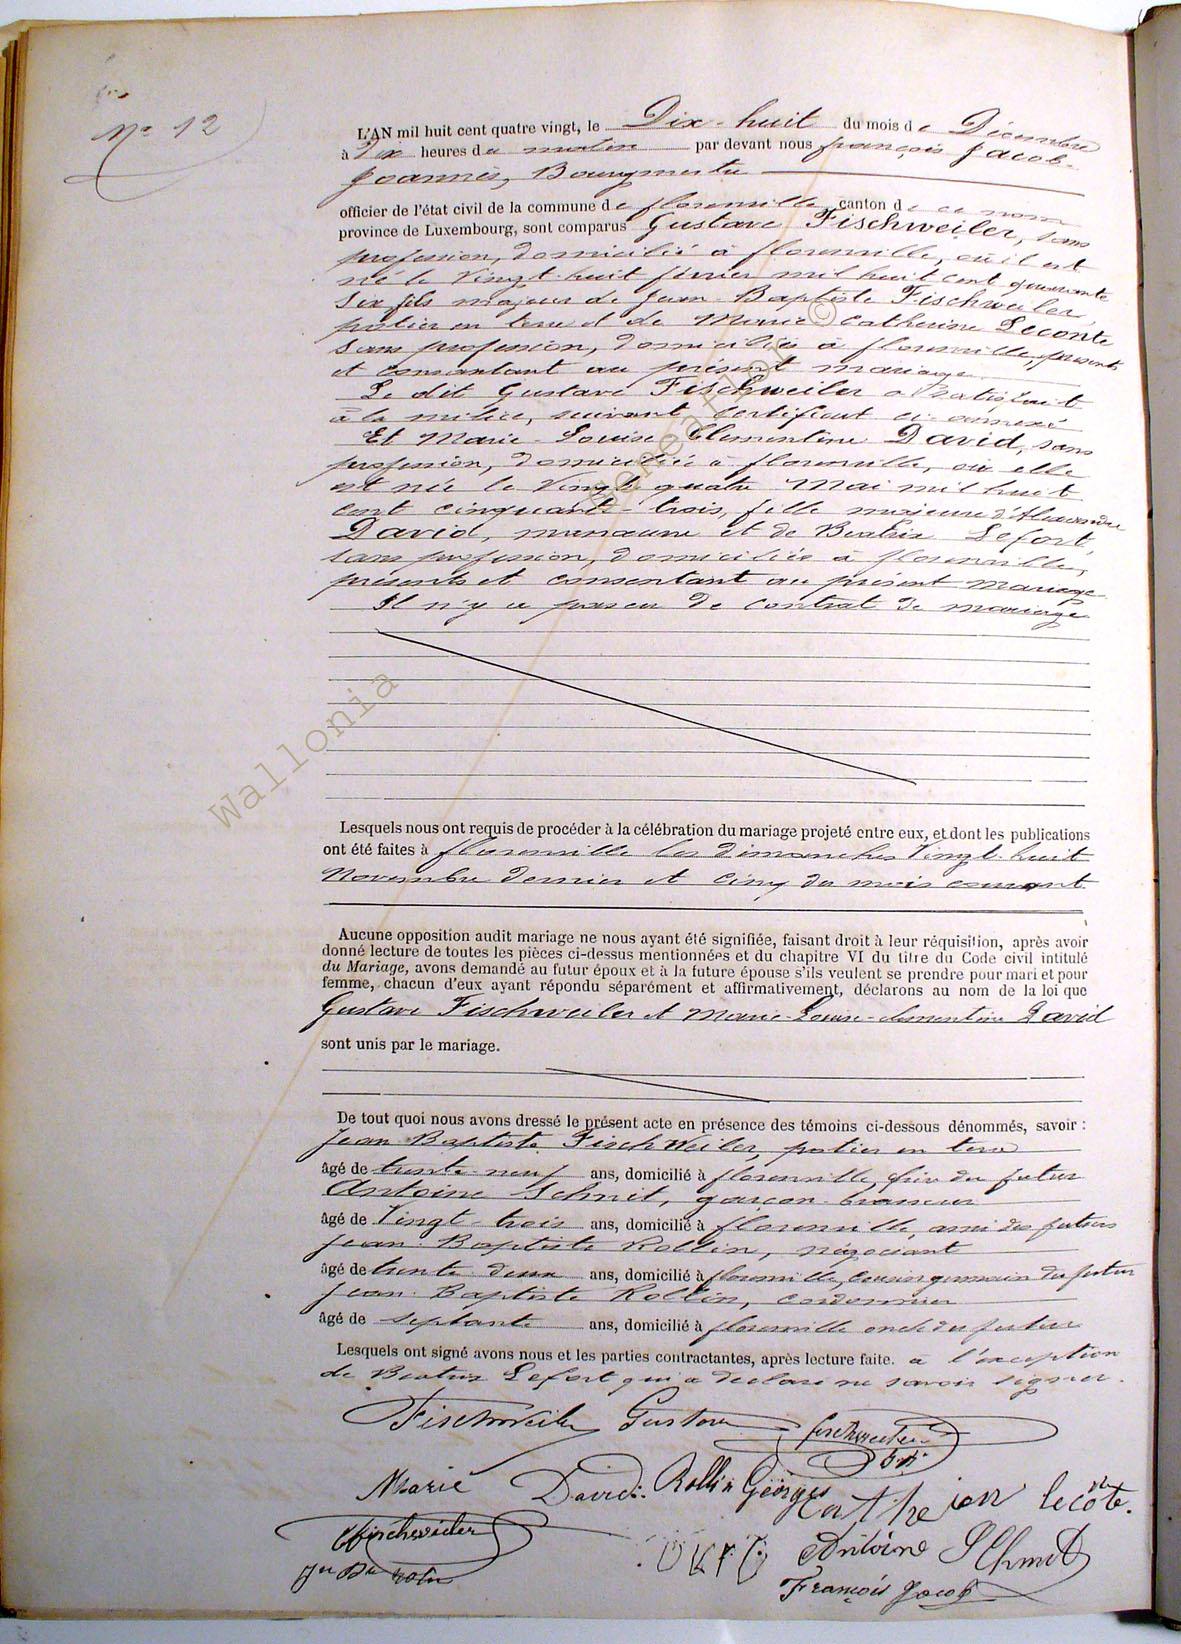 No 12
L'AN mil huit cent quatre vingt, le Dix-huit du mois de Décembre
à Dix heures du matin par devant nous françois Jacob-
Joannès, Bourgmestre
officier de l'état civil de la commune de florenville, canton de ce nom
province de Luxembourg, sont comparus Gustave Fischweiler, sans
profession, domicilié à florenville, où il est
né le Vingt-huit février mil huit cent quarante
Six fils majeur de Jean-Baptiste Fischweiler,
potier en terre et de Marie Catherine Leconte
Sans profession, domiciliés à florenville, présents
et consentant au présent mariage
Le dit Gustave Fischweiler a satisfait
à la milice, suivant certificat ci-annexé
Et Marie-Louise Clementine David, sans
profession, domiciliée à florenville, où elle
est née le Vingt quatre Mai mil huit
cent cinquante-trois, fille majeure d'Alexandre
David, manœuvre et de Beatrix Lefort,
sans profession, domiciliés à florenville,
présents et consentant au présent mariage
Il n'y a pas eu de contrat de mariage
Lesquels nous ont requis de procéder à la célébration du mariage projeté entre eux, et dont les publications
ont été faites à florenville les dimanches Vingt-huit
Novembre dernier et cinq du mois courant
Aucune opposition audit mariage ne nous ayant été signifiée, faisant droit à leur réquisition, après avoir
donné lecture de toutes les pièces ci-dessus mentionnées et du chapitre VI du titre du Code civil intitulé
du Mariage, avons demandé au futur époux et à la future épouse s'ils veulent se prendre pour mari et pour
femme, chacun d'eux ayant répondu séparément et affirmativement, déclarons au nom de la loi que
Gustave Fischweiler et Marie-Louise-clementine David
sont unis par le mariage.
De tout quoi nous avons dressé le présent acte en présence des témoins ci-dessous dénommés, savoir :
Jean Baptiste FischWeiler, potier en terre
âgé de trente-neuf ans, domicilié à florenville, frère du futur
Antoine Schmit, garçon brasseur
âgé de Vingt-trois ans, domicilié à florenville, ami des futurs
Jean-Baptiste Rollin, négociant
âgé de trente deux ans, domicilié à florenville, cousin germain du futur
Jean-Baptiste Rollin, cordonnier
âgé de septante ans, domicilié à florenville oncle du futur
Lesquels ont signé avons nous et les parties contractantes, après lecture faite. à l'exception
de Beatrix Lefort qui a déclaré ne savoir signer.
Fischweiler Gustave fischweiler
Marie David. Rollin Georges Catherien lecônte.
fischweiler
Antoine Schmit
François Jacob
Wallonia Geneafier ©